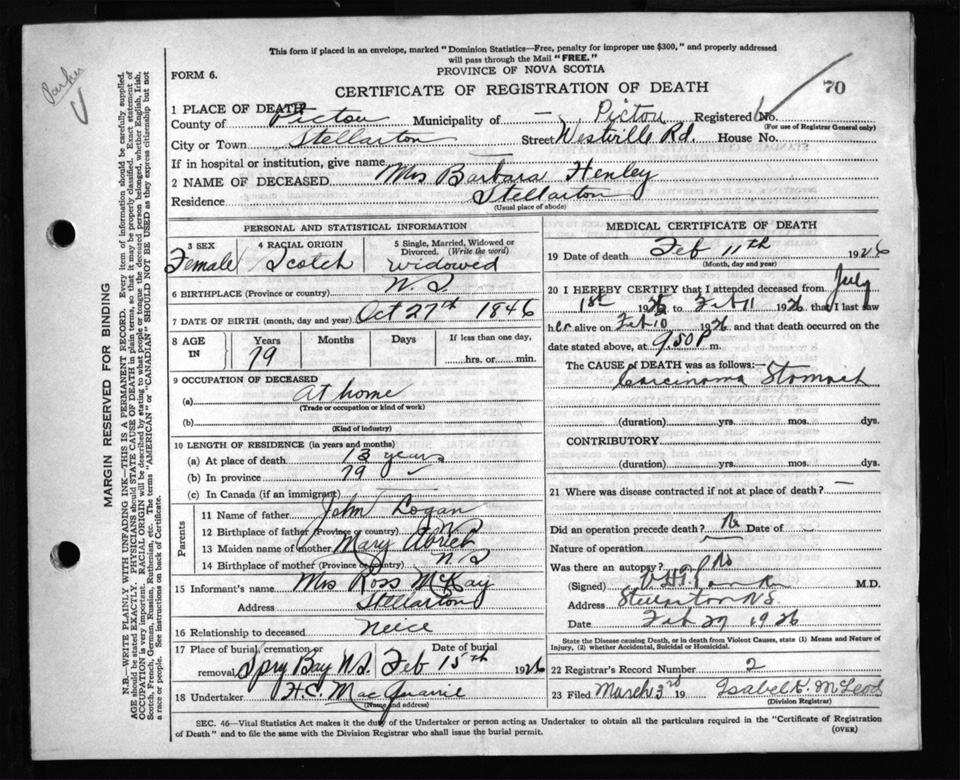 This form if placed in an envelope, marked "Dominion Statistics—Free, penalty for improper use $300," and properly addressed
will pass through the Mail "FREE."
FORM 6.
PROVINCE OF NOVA SCOTIA
CERTIFICATE OF REGISTRATION OF DEATH
70
Parker
1 PLACE OF DEATH
County of Pictou Municipality of — Pictou Registered No.
(For use of Registrar General only)
City or Town Stellarton Street Westville Rd. House No.
If in hospital or institution, give name
2 NAME OF DECEASED Mrs Barbara Henley
Residence Stellarton
(Usual place of abode)
PERSONAL AND STATISTICAL INFORMATION
3 SEX Female
4 RACIAL ORIGIN Scotch
5 Single, Married, Widowed or Divorced. (Write the word) widowed
6 BIRTHPLACE (Province or country) N.S
7 DATE OF BIRTH (month, day and year) Oct 27th 1846
8 AGE IN Years 79 Months Days If less than one day, hrs. or min.
9 OCCUPATION OF DECEASED
(a) At home
(Trade or occupation or kind of work)
(b)
(Kind of industry)
10 LENGTH OF RESIDENCE (in years and months)
(a) At place of death 13 years
(b) In province 79
(c) In Canada (if an immigrant)
Parents
11 Name of father John Logan
12 Birthplace of father (Province or country) N S
13 Maiden name of mother Mary
14 Birthplace of mother (Province or country) N.S
15 Informant's name Mrs Ross McKay
Address Stellarton
16 Relationship to deceased Neice
17 Place of burial, cremation or removal Spry Bay N.S. Date of burial Feb 15th 1926
18 Undertaker H.C. MacQuarrie
(Name and address)
MEDICAL CERTIFICATE OF DEATH
19 Date of death Feb 11th 1926
(Month, day and year)
20 I HEREBY CERTIFY that I attended deceased from July
1st 1925 to Feb 11 1926 that I last saw
her alive on Feb 10 1926 and that death occurred on
date stated above, at 9.50 P m.
The CAUSE of DEATH was as follows:—
Carcinoma Stomach
(duration) yrs. mos. dys.
CONTRIBUTORY
(duration) yrs. mos. dys.
21 Where was disease contracted if not at place of death? —
Did an operation precede death? No Date of —
Nature of operation
Was there an autopsy? No
(Signed) M.D.
Address Stellarton N.S.
Date Feb 27 1926
State the Disease causing Death, or in death from Violent Causes, state (1) Means and Nature of
Injury, (2) whether Accidental, Suicidal or Homicidal.
22 Registrar's Record Number 2
23 Filed March 3rd 19 Isabel K. McLeod
(Division Registrar)
SEC. 46—Vital Statistics Act makes it the duty of the Undertaker or person acting as Undertaker to obtain all the particulars required in the "Certificate of Registration
of Death" and to file the same with the Division Registrar who shall issue the burial permit.
(OVER)
MARGIN RESERVED FOR BINDING
N.B.—WRITE PLAINLY WITH UNFADING INK—THIS IS A PERMANENT RECORD. Every item of information should be carefully supplied.
AGE should be stated EXACTLY. PHYSICIANS should STATE CAUSE OF DEATH in plain terms, so that it may be properly classified. Exact statement of
OCCUPATION is very important. RACIAL ORIGIN will be described by stating to what people or tongue the deceased person belonged, whether English, Irish,
Scotch, French, German, Russian, Ruthenian, etc. The terms "AMERICAN" or "CANADIAN" SHOULD NOT BE USED as they express citizenship but not
a race or people. See instructions on back of Certificate.